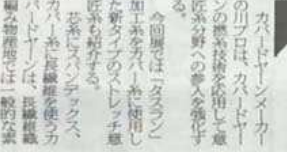 カバードヤーンメーカー
の川プロは、カバードヤー
ンの撚糸技術を応用して意
匠糸分野への参入を強化す
る。
今回展では「タスラン」
加工糸をカバー糸に使用し
た新タイプのストレッチ意
匠糸も紹介する。
芯糸にスパンデックス、
カバー糸に長繊維を使うカ
バードヤーンは、長繊維織
編み物産地では一般的な素